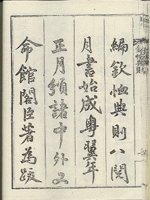 編欽恤典則八閱
月書始成粤翼年
正月頒諸中外又
命館閣臣著為跋